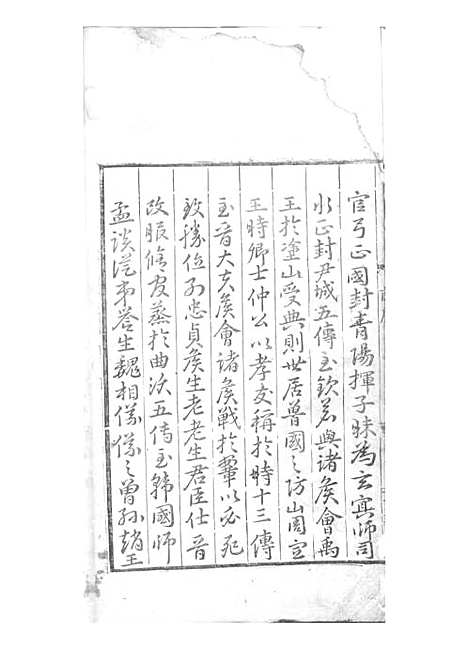 官弓正國封青陽揮子昧為玄冥師司
水正封尹城五傳至欽若與諸侯會禹
王於塗山受典則世居魯國之防山周宣
王時卿士仲公以孝友稱於時十三傳
至晉大夫侯會諸侯戰於鞌以必死
致勝位列忠貞侯生老老生君臣仕晉
改服脩皮蒸於曲沃五傳至韓國師
孟談從弟誉生魏相儀儀之曾孫趙王